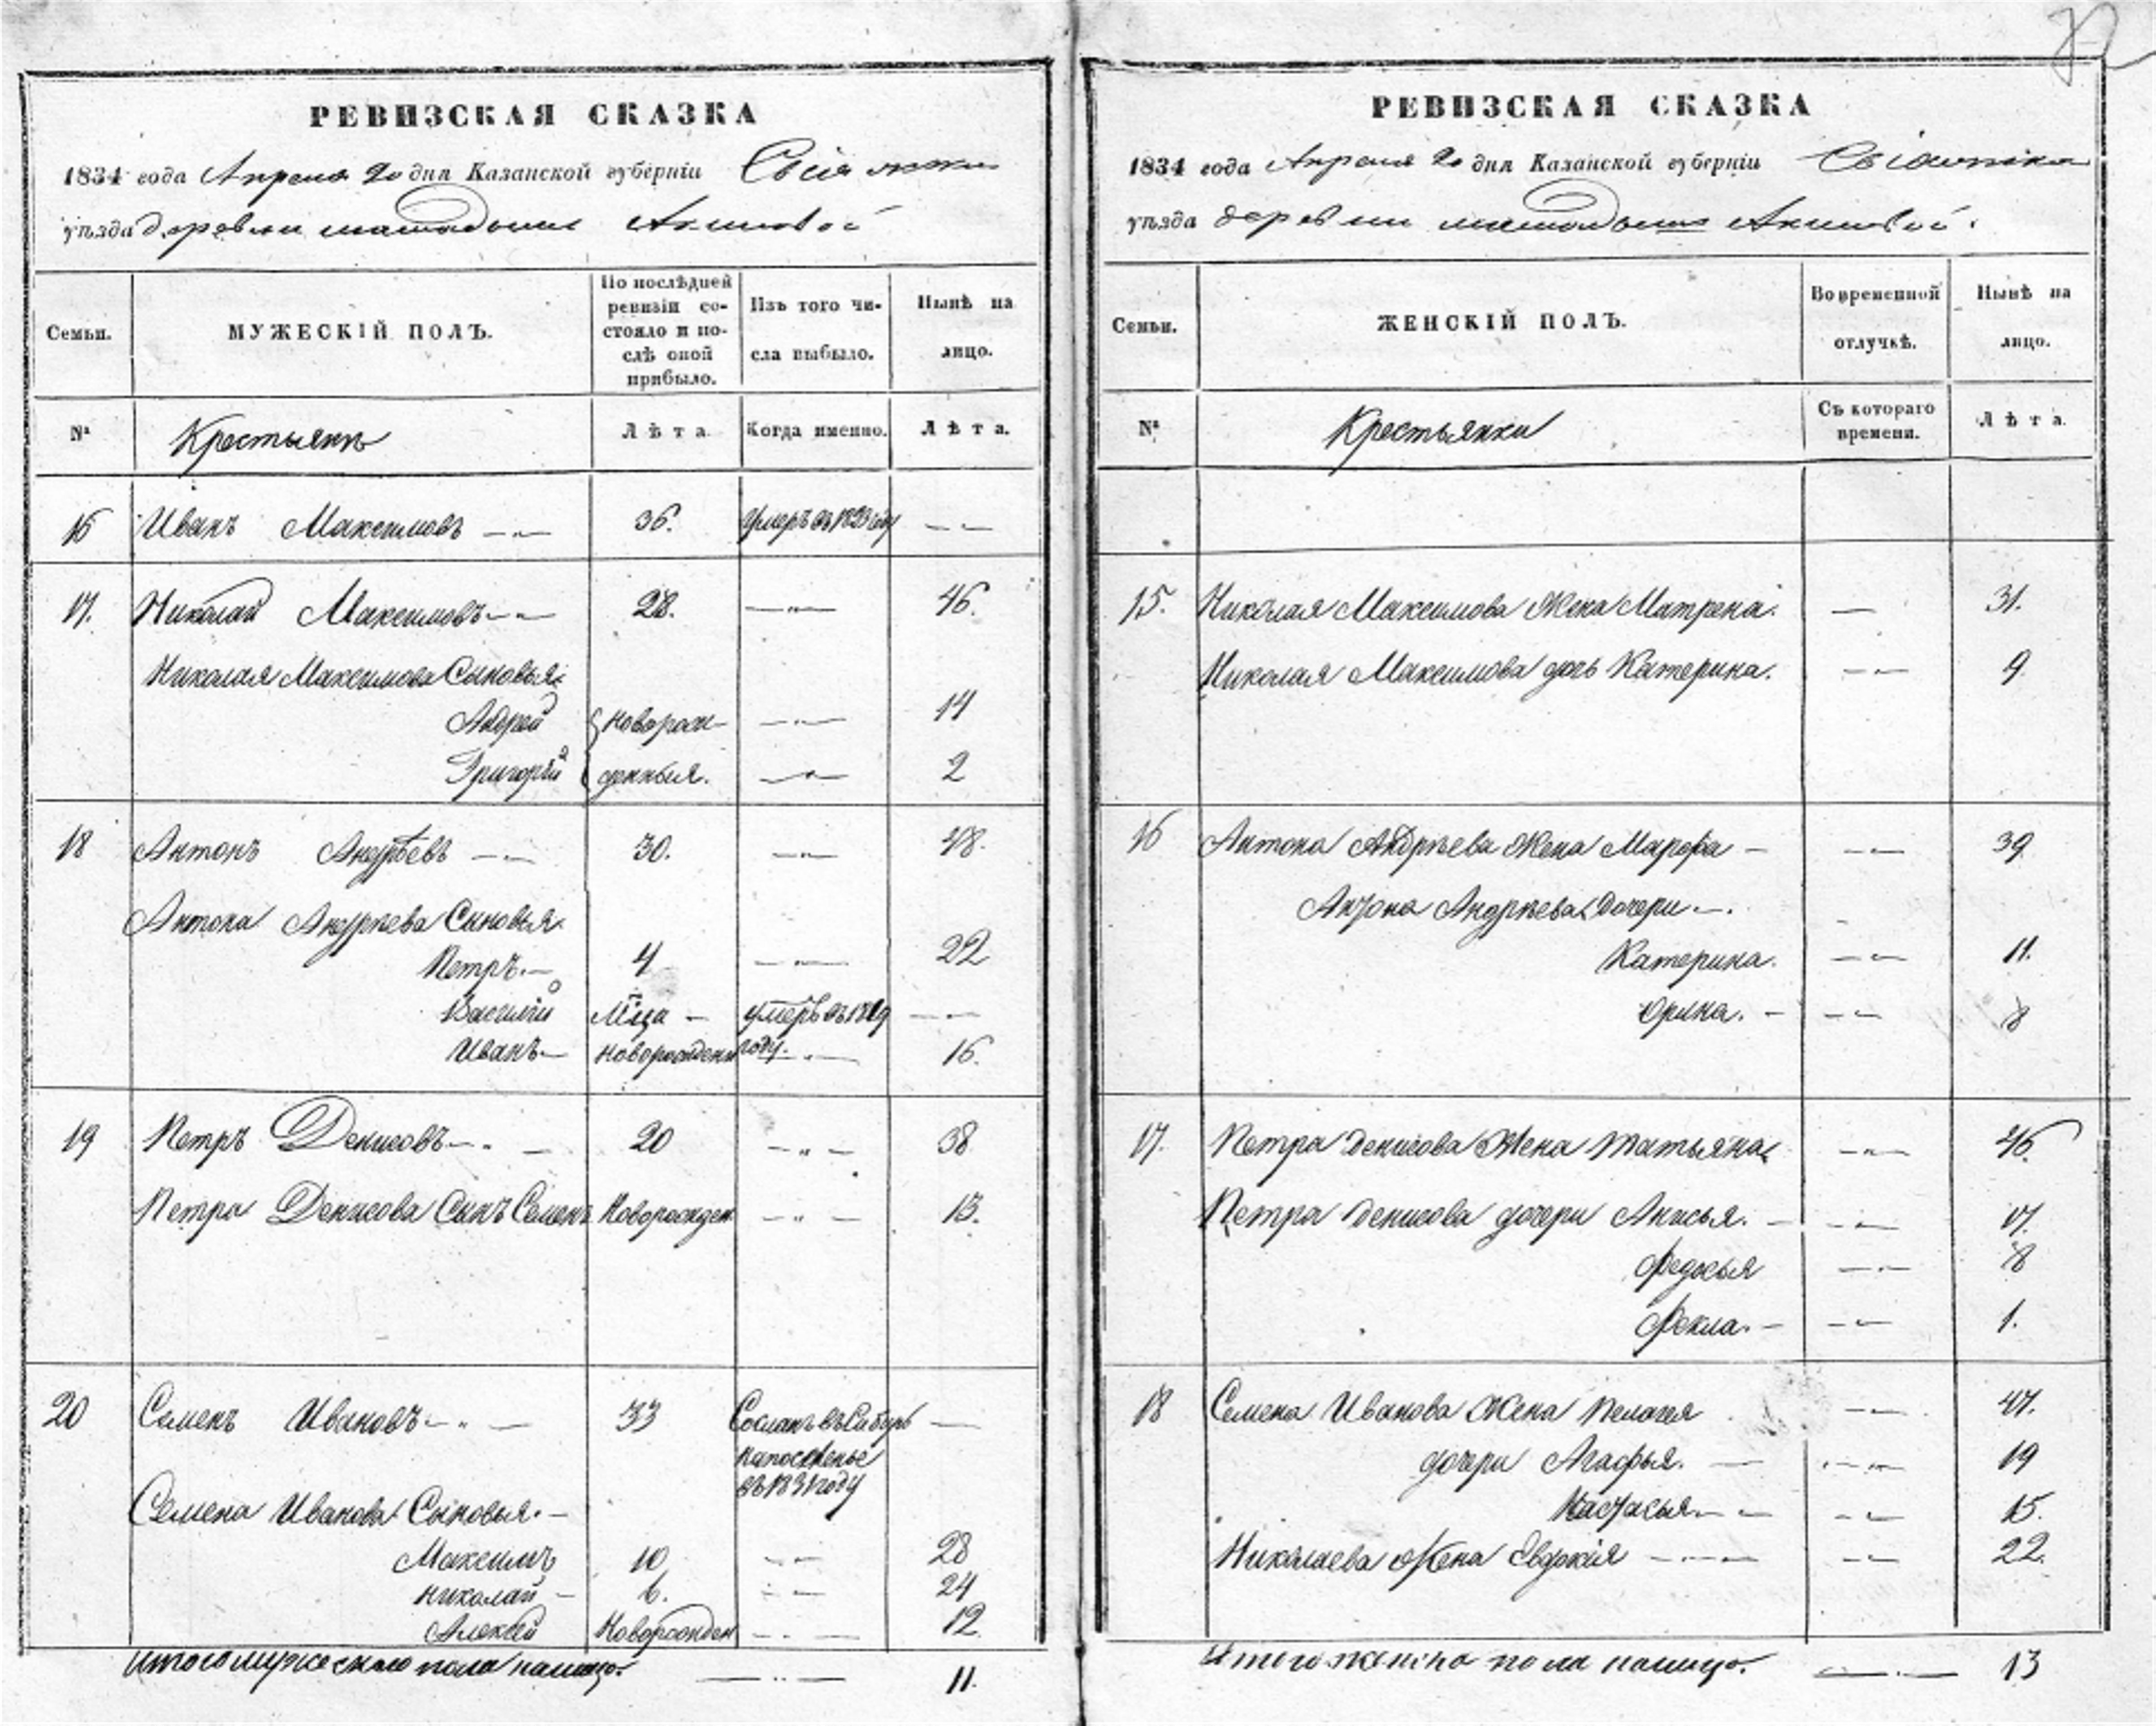 РЕВИЗСКАЯ СКАЗКА
1834 года Апреля 20 дня Казанской губернiи
уѣзда деревни Акишевой
Семьи.
МУЖЕСКIЙ ПОЛЪ.
По послѣдней ревизiи состояло и послѣ оной прибыло.
Изъ того числа выбыло.
Нынѣ на лицо.
№
Крестьянъ
Лѣта
Когда именно.
Лѣта.
16 Иванъ Максимовъ 36. умеръ въ 1823 году
17. Николай Максимовъ 28. 46.
Николая Максимова Сыновья
Андрей новорож- 14
Григорiй денныя. 2
18 Антонъ Андрѣевъ 30. 48.
Антона Андрѣева Сыновья.
Петръ. 4 22
Василiй Мца умеръ въ 1819
Иванъ новорожден году. 16.
19 Петръ Денисовъ 20 38
Петра Денисова Сынъ Семенъ Новорожден 13.
20 Семенъ Ивановъ 33 Сосланъ въ Сибирь
на поселенье
въ 1831 году
Семена Иванова Сыновья.
Максимъ 10 28
Николай 6. 24
Алексѣй Новорожден 12
Итого мужескаго пола налицо. 11.
РЕВИЗСКАЯ СКАЗКА
1834 года Апреля 20 дня Казанской губернiи
уѣзда деревни Акишевой.
Семьи.
ЖЕНСКIЙ ПОЛЪ.
Во временной отлучкѣ.
Нынѣ на лицо.
№
Крестьянки
Съ котораго времени.
Лѣта.
15. Николая Максимова Жена Матрена. 31.
Николая Максимова дочь Катерина. 9
16 Антона Андрѣева Жена Марфа 39
Антона Андрѣева Дочери
Катерина. 11.
Орина. 8
17. Петра Денисова Жена Татьяна 46.
Петра Денисова дочери Анисья. 17.
Федосья 8
Фекла. 1.
18 Семена Иванова Жена Пелагея 47.
дочери Агафья. 19
Настасья 15.
Николаева Жена Евдокiя 22.
Итого женска пола налицо. 13